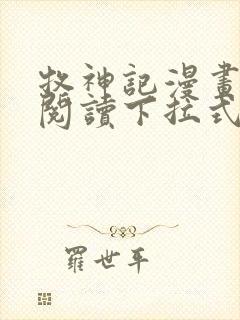 牧神記漫畫
閱讀下拉式
羅世平